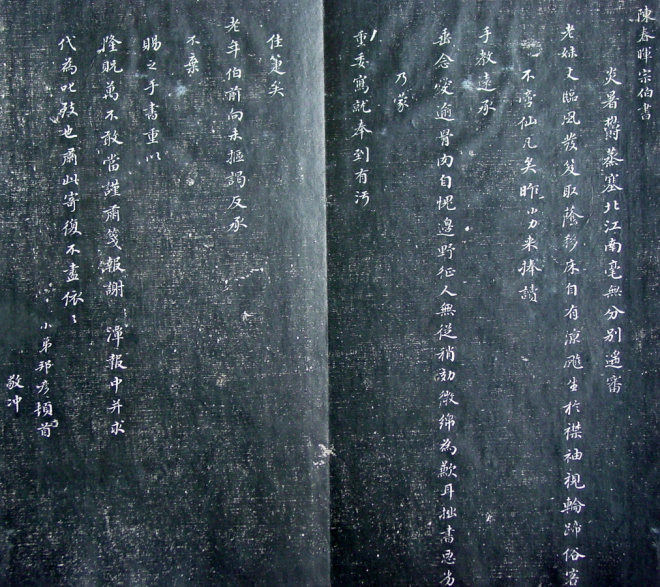 陳春暉宗伯書
炎暑鬱蒸塞北江南毫無分別遙審
老妹丈臨風發笈取蔭移床自有涼颸生於襟袖視輪蹄俗客
不啻仙凡矣昨小力來捧讀
手教遠承
垂念愛逾骨肉自愧邊野征人無從稍効微綿為歉耳拙書惡劣
乃蒙
重委寫就奉到有污
佳箑矣
老年伯前向未摳謁反承
不棄
賜之手書重以
隆貺萬不敢當謹肅箋報謝 渾報中并求
代為叱致也肅此寄復不盡依〻
小弟邦彥頓首
敬沖